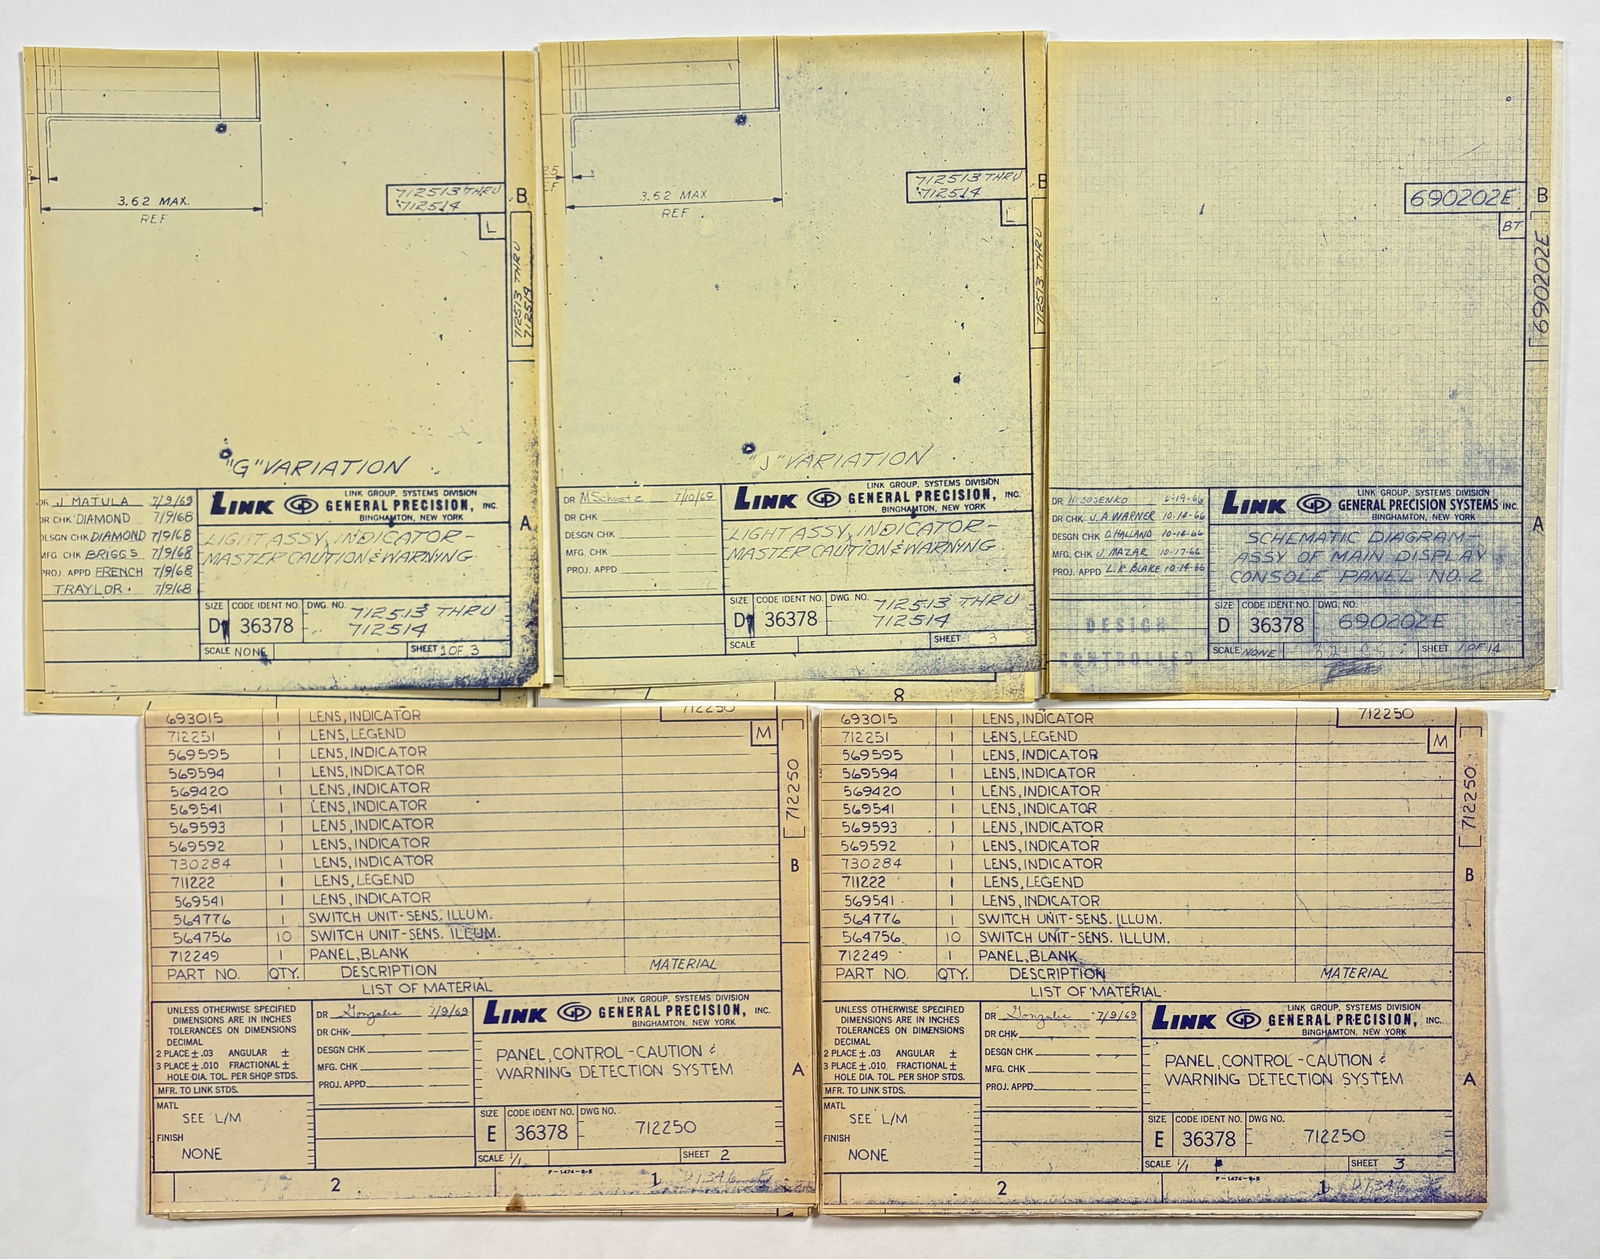 3.62 MAX.
REF
712513 THRU
712514
L
B
712513 THRU
712514
A
"G" VARIATION
DR J MATULA 7/9/69
DR CHK DIAMOND 7/9/68
DESGN CHK DIAMOND 7/9/68
MFG CHK BRIGGS 7/9/68
PROJ. APPD FRENCH 7/9/68
TRAYLOR 7/9/68
LINK GP LINK GROUP, SYSTEMS DIVISION
GENERAL PRECISION, INC.
BINGHAMTON, NEW YORK
LIGHT ASSY, INDICATOR-
MASTER CAUTION & WARNING
SIZE CODE IDENT NO. DWG. NO.
D 36378 712513 THRU
712514
SCALE NONE SHEET 1 OF 3
3.62 MAX
REF
712513 THRU
712514
L
B
712513 THRU
"J" VARIATION
DR M Schwartz 7/10/69
DR CHK
DESGN CHK
MFG. CHK
PROJ. APPD
LINK GP LINK GROUP, SYSTEMS DIVISION
GENERAL PRECISION, INC.
BINGHAMTON, NEW YORK
LIGHT ASSY, INDICATOR-
MASTER CAUTION & WARNING
SIZE CODE IDENT NO. DWG. NO.
D 36378 712513 THRU
712514
SCALE SHEET 3
8
690202E
BT
B
690202E
A
DR H. SOSENKO 6-19-66
DR CHK J. A WARNER 10-14-66
DESGN CHK D. HALLAND 10-14-66
MFG. CHK J. MAZAR 10-17-66
PROJ. APPD L R BLAKE 10-14-66
DESIGN
CONTROLLED
LINK GP LINK GROUP, SYSTEMS DIVISION
GENERAL PRECISION SYSTEMS INC.
BINGHAMTON, NEW YORK
SCHEMATIC DIAGRAM-
ASSY OF MAIN DISPLAY
CONSOLE PANEL NO. 2
SIZE CODE IDENT NO. DWG. NO.
D 36378 690202E
SCALE NONE SHEET 1 OF 14
712250
M
[712250]
B
A
693015 1 LENS, INDICATOR
712251 1 LENS, LEGEND
569595 1 LENS, INDICATOR
569594 1 LENS, INDICATOR
569420 1 LENS, INDICATOR
569541 1 LENS, INDICATOR
569593 1 LENS, INDICATOR
569592 1 LENS, INDICATOR
730284 1 LENS, INDICATOR
711222 1 LENS, LEGEND
569541 1 LENS, INDICATOR
564776 1 SWITCH UNIT-SENS. ILLUM.
564756 10 SWITCH UNIT-SENS. ILLUM.
712249 1 PANEL, BLANK
PART NO. QTY. DESCRIPTION MATERIAL
LIST OF MATERIAL
UNLESS OTHERWISE SPECIFIED
DIMENSIONS ARE IN INCHES
TOLERANCES ON DIMENSIONS
DECIMAL
2 PLACE ± .03 ANGULAR ±
3 PLACE ± .010 FRACTIONAL ±
HOLE DIA. TOL. PER SHOP STDS.
MFR. TO LINK STDS.
MATL
SEE L/M
FINISH
NONE
DR Gonzales 7/9/69
DR CHK
DESGN CHK
MFG. CHK
PROJ. APPD
LINK GP LINK GROUP, SYSTEMS DIVISION
GENERAL PRECISION, INC.
BINGHAMTON, NEW YORK
PANEL, CONTROL - CAUTION &
WARNING DETECTION SYSTEM
SIZE CODE IDENT NO. DWG NO.
E 36378 712250
SCALE 1/1 SHEET 2
F-1474-B-E
2 1
712250
M
[712250]
B
A
693015 1 LENS, INDICATOR
712251 1 LENS, LEGEND
569595 1 LENS, INDICATOR
569594 1 LENS, INDICATOR
569420 1 LENS, INDICATOR
569541 1 LENS, INDICATOR
569593 1 LENS, INDICATOR
569592 1 LENS, INDICATOR
730284 1 LENS, INDICATOR
711222 1 LENS, LEGEND
569541 1 LENS, INDICATOR
564776 1 SWITCH UNIT-SENS. ILLUM.
564756 10 SWITCH UNIT-SENS. ILLUM.
712249 1 PANEL, BLANK
PART NO. QTY. DESCRIPTION MATERIAL
LIST OF MATERIAL
UNLESS OTHERWISE SPECIFIED
DIMENSIONS ARE IN INCHES
TOLERANCES ON DIMENSIONS
DECIMAL
2 PLACE ± .03 ANGULAR ±
3 PLACE ± .010 FRACTIONAL ±
HOLE DIA. TOL. PER SHOP STDS.
MFR. TO LINK STDS.
MATL
SEE L/M
FINISH
NONE
DR Gonzales 7/9/69
DR CHK
DESGN CHK
MFG. CHK
PROJ. APPD
LINK GP LINK GROUP, SYSTEMS DIVISION
GENERAL PRECISION, INC.
BINGHAMTON, NEW YORK
PANEL, CONTROL - CAUTION &
WARNING DETECTION SYSTEM
SIZE CODE IDENT NO. DWG NO.
E 36378 712250
SCALE 1/1 SHEET 3
F-1474-B-E
2 1